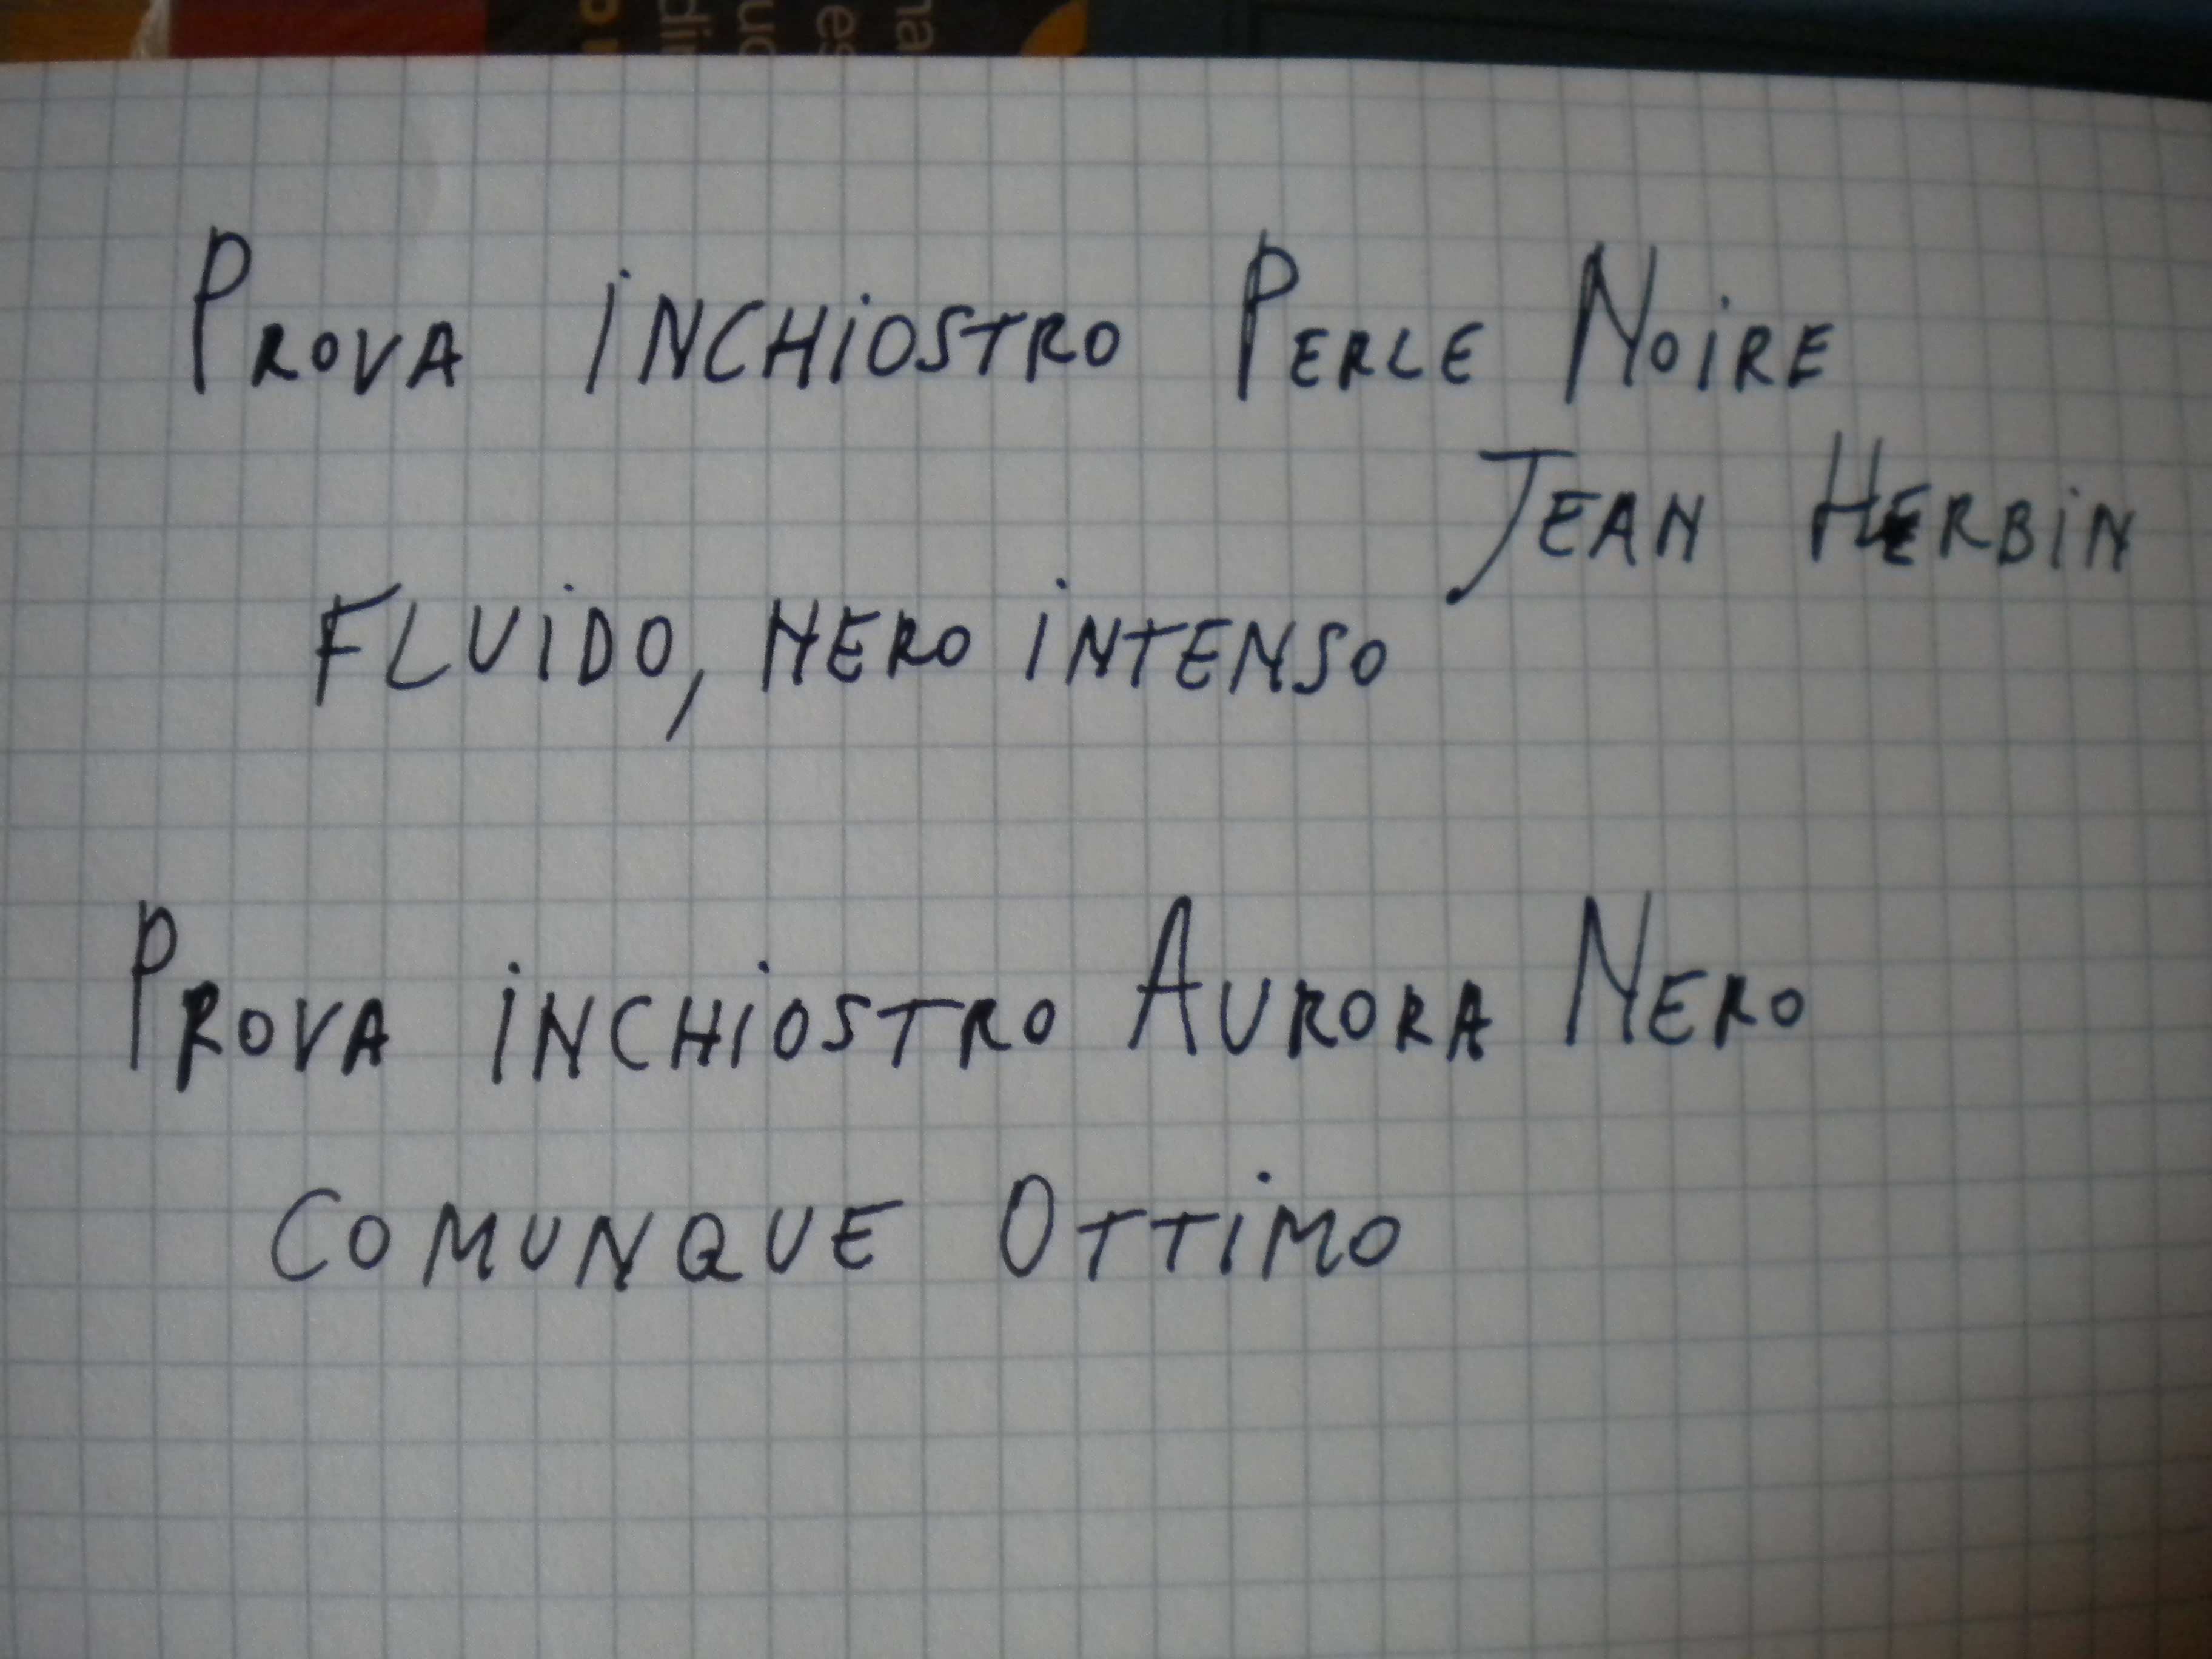 PROVA INCHIOSTRO PERLE NOIRE
JEAN HERBIN
FLUIDO, NERO INTENSO
PROVA INCHIOSTRO AURORA NERO
COMUNQUE OTTIMO